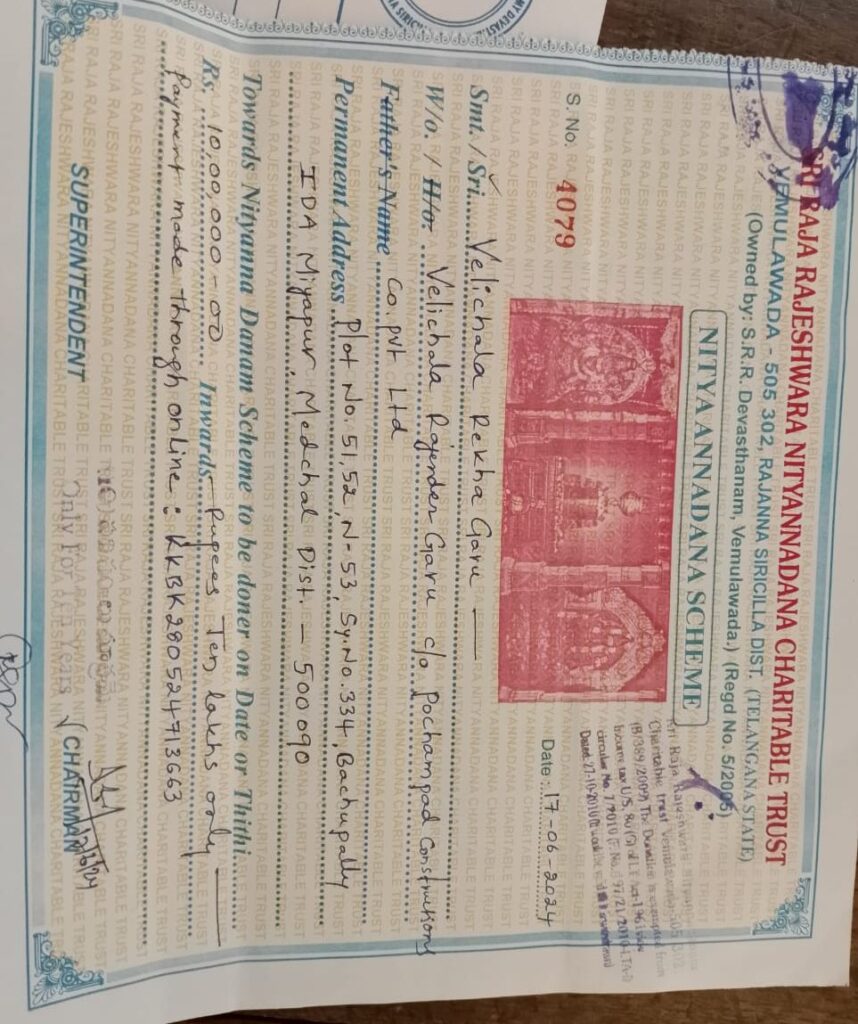 SRI RAJA RAJESHWARA NITYANNADANA CHARITABLE TRUST
VEMULAWADA - 505 302, RAJANNA SIRICILLA DIST. (TELANGANA STATE)
(Owned by: S.R.R. Devasthanam, Vemulawada.) (Regd No. 5/2005)
NITYA ANNADANA SCHEME
Sri Raja Rajeshwara
Charitable trust Vemulawada-505 302.
(B/389/2009) The Donation is exempted from
Income tax U/S. 80 (G) of I.T. Act-1961 vide
circular No. 7/2010
Dated: 27-10-2010
S. No. 4079
Date: 17-06-2024
Smt. / Sri. Velichala Rekha Garu
W/o. / H/o. Velichala Rajender Garu c/o Pochampad Constructions
Father's Name Co. pvt Ltd
Permanent Address Plot No. 51, 52, N-53, Sy. No. 334, Bachupally
IDA Miyapur, Medchal Dist. - 500090
Towards Nityanna Danam Scheme to be doner on Date or Thithi
Rs. 10,00,000-00 Inwards Rupees Ten lakhs only
Payment made through online: KKBK280524713663
Only For Ten Years
SUPERINTENDENT
CHAIRMAN